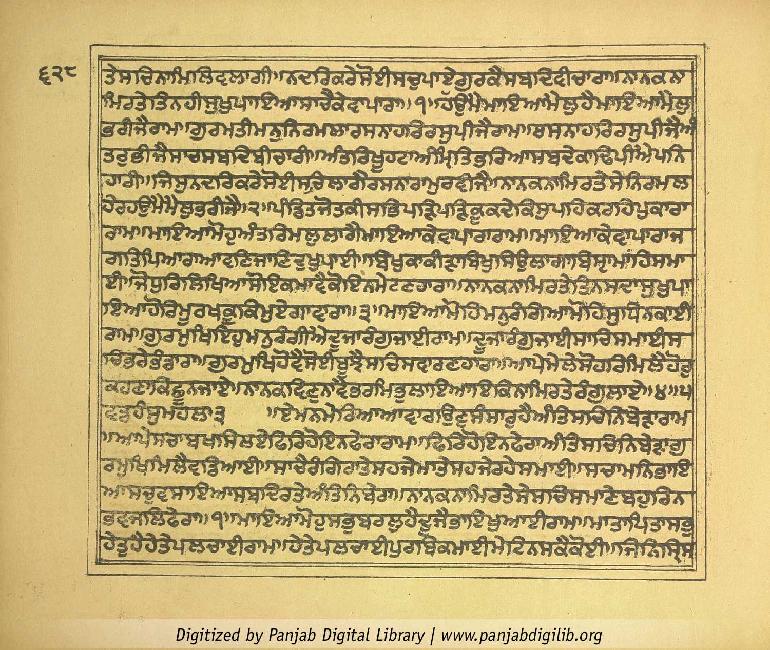 ੬੨੮
ਤੇਸਚਿਨਾਮਿਲਿਵਲਾਗੀ॥ਨਦਰਿਕਰੇਸੋਈਸਚੁਪਾਏਗੁਰਕੈਸਬਦਿਵੀਚਾਰਾ॥ਨਾਨਕਨਾ
ਮਿਰਤੇਤਿਨਹੀਸੁਖੁਪਾਇਆਸਾਚੈਕੇਵਾਪਾਰਾ॥੧॥ਹੰਉਮੈਮਾਇਆਮੈਲੁਹੈਮਾਇਆਮੈਲੁ
ਭਰੀਜੈਰਾਮ॥ਗੁਰਮਤੀਮਨੁਨਿਰਮਲਾਰਸਨਾਹਰਿਰਸੁਪੀਜੈਰਾਮ॥ਰਸਨਾਹਰਿਰਸੁਪੀਜੈਅੰ
ਤਰੁਭੀਜੈਸਾਚਸਬਦਿਬੀਚਾਰੀ॥ਅੰਤਰਿਖੂਹਟਾਅੰਮ੍ਰਿਤਿਭਰਿਆਸਬਦੇਕਾਢਿਪੀਐਪਨਿ
ਹਾਰੀ॥ਜਿਸੁਨਦਰਿਕਰੇਸੋਈਸਚਿਲਾਗੈਰਸਨਾਰਾਮੁਰਵੀਜੈ॥ਨਾਨਕਨਾਮਿਰਤੇਸੇਨਿਰਮਲ
ਹੋਰਹਉਮੈਮੈਲੁਭਰੀਜੈ॥੨॥ਪੰਡਿਤਜੋਤਕੀਸਭਿਪੜਿਪੜਿਕੂਕਦੇਕਿਸੁਪਹਿਕਰਹਿਪੁਕਾਰਾ
ਰਾਮ॥ਮਾਇਆਮੋਹੁਅੰਤਰਿਮਲੁਲਾਗੈਮਾਇਆਕੇਵਾਪਾਰਾਰਾਮ॥ਮਾਇਆਕੇਵਾਪਾਰਾਜ
ਗਤਿਪਿਆਰਾਆਵਣਿਜਾਣਿਦੁਖੁਪਾਈ॥ਬਿਖੁਕਾਕੀੜਾਬਿਖੁਸਿਉਲਾਗਾਬਿਸ੍ਟਾਮਾਹਿਸਮਾ
ਈ॥ਜੋਧੁਰਿਲਿਖਿਆਸੋਇਕਮਾਵੈਕੋਇਨਮੇਟਣਹਾਰਾ॥ਨਾਨਕਨਾਮਿਰਤੇਤਿਨਸਦਾਸੁਖੁਪਾ
ਇਆਹੋਰਿਮੂਰਖਕੂਕਿਮੁਏਗਾਵਾਰਾ॥੩॥ਮਾਇਆਮੋਹਿਮਨੁਰੰਗਿਆਮੋਹਿਸੁਧਿਨਕਾਈ
ਰਾਮ॥ਗੁਰਮੁਖਿਇਹੁਮਨੁਰੰਗੀਐਦੂਜਾਰੰਗੁਜਾਈਰਾਮ॥ਦੂਜਾਰੰਗੁਜਾਈਸਾਚਿਸਮਾਈਸ
ਚਿਭਰੇਭੰਡਾਰਾ॥ਗੁਰਮੁਖਿਹੋਵੈਸੋਈਬੂਝੈਸਚਿਸਵਾਰਣਹਾਰਾ॥ਆਪੇਮੇਲੇਸੋਹਰਿਮਿਲੈਹੋਰੁ
ਕਹਣਾਕਿਛੂਨਜਾਏ॥ਨਾਨਕਵਿਣੁਨਾਵੈਭਰਮਿਭੁਲਾਇਆਇਕਿਨਾਮਿਰਤੇਰੰਗੁਲਾਏ॥੪॥੫
ਵਡਹੰਸੁਮਹਲਾ੩ ॥ਏਮਨਮੇਰਿਆਆਵਾਗਉਣੁਸੰਸਾਰੁਹੈਅੰਤਿਸਚਿਨਿਬੇੜਾਰਾਮ
॥ਆਪੇਸਚਾਬਖਸਿਲਏਫਿਰਿਹੋਇਨਫੇਰਾਰਾਮ॥ਫਿਰਿਹੋਇਨਫੇਰਾਅੰਤਿਸਚਿਨਿਬੇੜਾਗੁ
ਰਮੁਖਿਮਿਲੈਵਡਿਆਈ॥ਸਾਚੈਰੰਗਿਰਾਤੇਸਹਜੇਮਾਤੇਸਹਜੇਰਹੇਸਮਾਈ॥ਸਚਾਮਨਿਭਾਇ
ਆਸਚੁਵਸਾਇਆਸਬਦਿਰਤੇਅੰਤਿਨਿਬੇਰਾ॥ਨਾਨਕਨਾਮਿਰਤੇਸੇਸਚਿਸਮਾਣੇਬਹੁਰਿਨ
ਭਵਜਲਿਫੇਰਾ॥੧॥ਮਾਇਆਮੋਹੁਸਭੁਬਰਲੁਹੈਦੂਜੈਭਾਇਖੁਆਈਰਾਮ॥ਮਾਤਾਪਿਤਾਸਭੁ
ਹੇਤੁਹੈਹੇਤੇਪਲਚਾਈਰਾਮ॥ਹੇਤੇਪਲਚਾਈਪੁਰਬਿਕਮਾਈਮੇਟਿਨਸਕੈਕੋਈ॥ਜਿਨਿਸ੍ਰਿਸ
Digitized by Panjab Digital Library | www.panjabdigilib.org